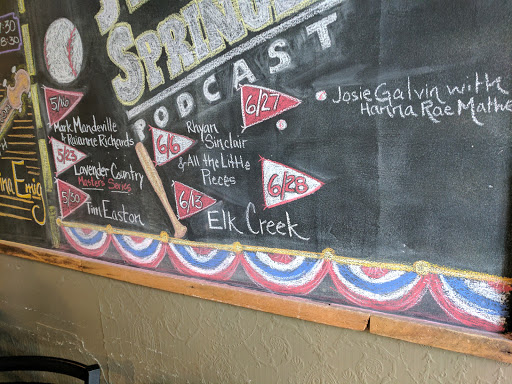 7:30
8:30
SPRINGE
PODCAST
5/16
Mark Mandeville
& Raianne Richards
5/23
Lavender Country
Masters Series
5/30
Tim Easton
6/6
Rhyan
Sinclair
& All the Little
Pieces
6/13
Elk Creek
6/27
Josie Galvin with
Hanna Rae Mathe
6/28